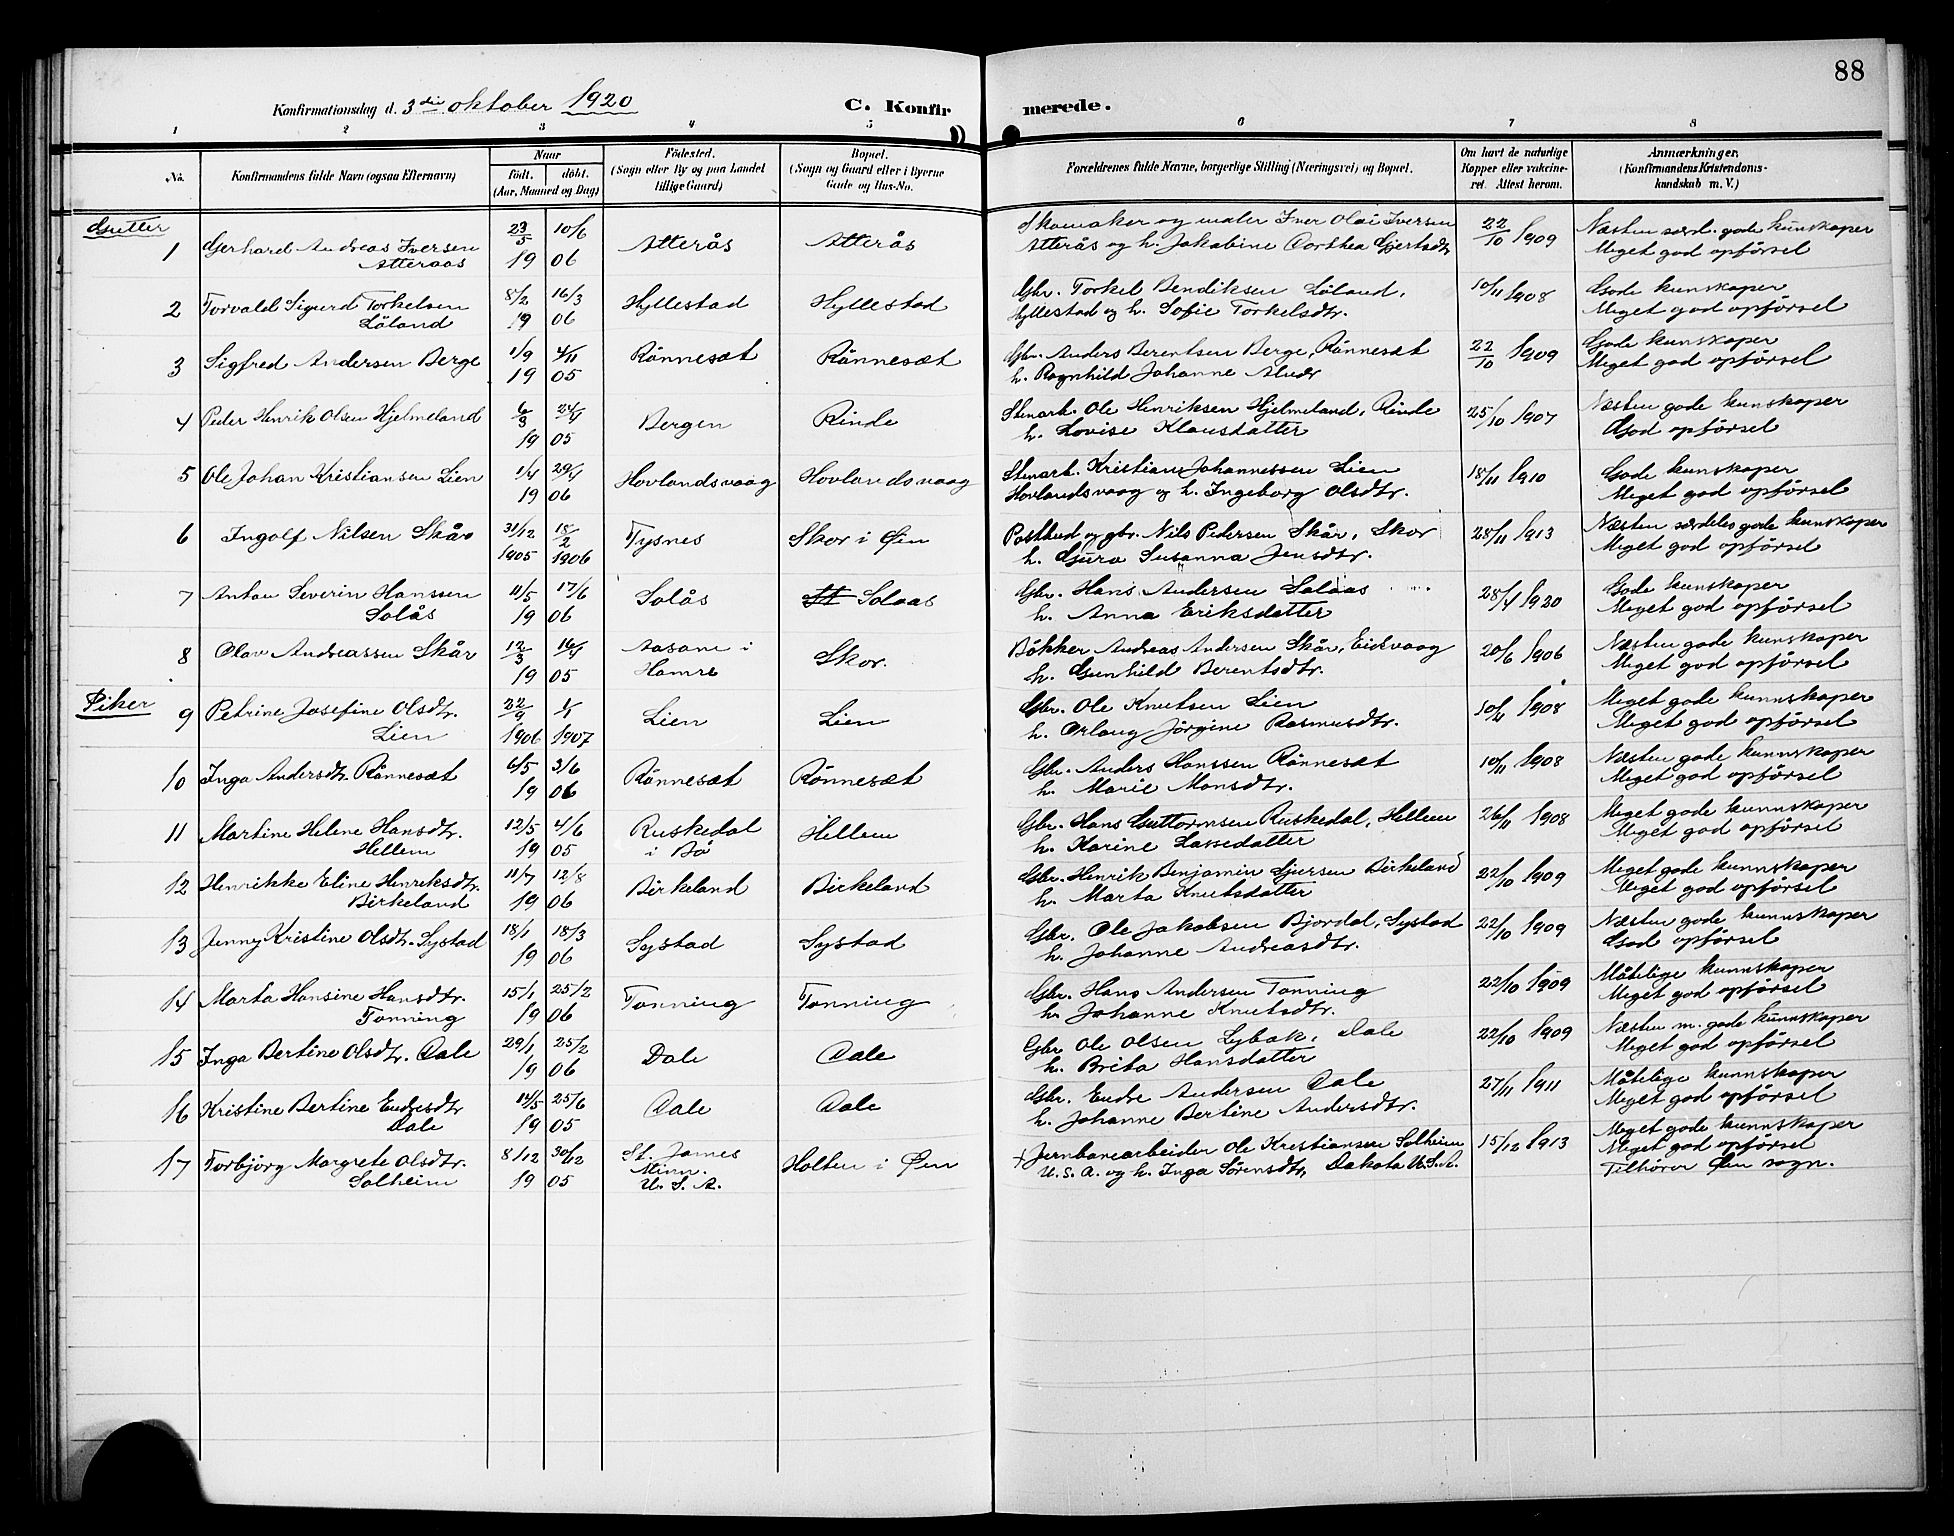 88
Konfirmationsdag d. 3die oktober 1920
C. Konfirmerede.
1 2 3 4 5 6 7 8
No. Konfirmandens fulde Navn (ogsaa Efternavn)
Naar
födt. döbt.
(Aar, Maaned og Dag)
Födested.
(Sogn eller By og paa Landet tillige Gaard)
Bopæl.
(Sogn og Gaard eller i Byerne Gade og Hus-No.
Forældrenes fulde Navne, borgerlige Stilling (Næringsvei) og Bopæl.
Om havt de naturlige Kopper eller vakcineret. Attest herom.
Anmærkninger.
(Konfirmandens Kristendomskundskab m. V.)
Gutter
1 Gerhard Andreas Iversen Atteraas 23/5 1906 10/6 Atterås Atterås
Skomaker og maler Iver Olai Iversen
Atterås og h. Jakobine Dorthea Gjertsdtr 22/10 1909 Næsten særd. gode kunskaper
Meget god opförsel
2 Torvald Sigurd Torkelsen Löland 8/2 16/3 1906 Hyllestad Hyllestad
Gbr. Torkel Bendiksen Löland,
Hyllestad og h. Sofie Torkelsdtr. 10/11 1908 Gode kunskaper
Meget god opförsel
3 Sigfred Andersen Berge 1/9 4/11 1905 Rönnesæt Rönnesæt
Gbr. Anders Berentsen Berge, Rönnesæt
h. Ragnhild Johanne 22/10 1909 Gode kunskaper
Meget god opförsel
4 Peder Henrik Olsen Hjelmeland 6/3 24/4 1905 Bergen Rinde
Stenarb. Ole Henriksen Hjelmeland, Rinde
h. Lovise Klausdatter 25/10 1907 Næsten gode kunskaper
God opförsel
5 Ole Johan Kristiansen Lien 1/4 29/4 1906 Hovlandsvaag Hovlandsvaag
Stenarb. Kristian Johannessen Lien
Hovlandsvaag og h. Ingeborg Olsdtr. 18/11 1910 Gode kunskaper
Meget god opförsel
6 Ingolf Nilsen Skår 31/12 1905 18/2 1906 Tysnes Skor i Öen
Postbud og gbr. Nils Pedersen Skår, Skor
h. Gura Susanna Jensdtr. 28/11 1913 Næsten særdeles gode kunskaper
Meget god opförsel
7 Anton Severin Hanssen Solås 11/5 17/6 1906 Solås Solaas
Gbr. Hans Andersen Solaas
h. Anna Eriksdatter 28/4 1920 Gode kunskaper
Meget god opförsel
8 Olav Andreassen Skår 12/3 16/4 1905 Aasane i Hamre Skor.
Bökker Andreas Andersen Skår, Eidsvaag
h. Gunhild Berentsdtr. 20/6 1906 Næsten gode kunskaper
Meget god opförsel
Piker
9 Petrine Josefine Olsdtr. Lien 22/9 1906 1/1 1907 Lien Lien
Gbr. Ole Knutsen Lien
h. Orlaug Jörgine Rasmusdtr. 10/11 1908 Meget gode kunnskaper
Meget god opförsel
10 Inga Andersdtr. Rönnesæt 6/5 3/6 1906 Rönnesæt Rönnesæt
Gbr. Anders Hanssen Rönnesæt
h. Marie Monsdtr. 10/11 1908 Næsten gode kunnskaper
Meget god opförsel
11 Martine Helene Hansdtr. Hellem 12/5 4/6 1905 Ruskedal i Bö Hellem
Gbr. Hans Guttormsen Ruskedal, Hellem
h. Karine Lassedatter 26/11 1908 Meget gode kunnskaper
Meget god opförsel
12 Henrikke Eline Henriksdtr. Birkeland 11/7 12/8 1906 Birkeland Birkeland
Gbr. Henrik Benjamin Gjersen Birkeland
h. Marta Knutsdatter 22/10 1909 Meget gode kunnskaper
Meget god opförsel
13 Jenny Kristine Olsdtr. Systad 18/1 18/3 1906 Systad Systad
Gbr. Ole Jakobsen Bjordal, Systad
h. Johanne Andreasdtr. 22/10 1909 Næsten gode kunnskaper
God opförsel
14 Marta Hansine Hansdtr. Tonning 15/1 25/2 1906 Tonning Tonning
Gbr. Hans Andersen Tonning
h. Johanne Knutsdtr. 22/10 1909 Måtelige kunnskaper
Meget god opförsel
15 Inga Bertine Olsdtr. Dale 29/1 25/2 1906 Dale Dale
Gbr Ole Olsen Lybak, Dale
h. Brita Hansdatter 22/10 1909 Næsten m. gode kunnskaper
Meget god opförsel
16 Kristine Bertine Endresdtr Dale 14/5 25/6 1905 Dale Dale
Gbr. Endre Andersen Dale
h. Johanne Bertine Andersdtr. 27/11 1911 Måtelige kunnskaper
Meget god opförsel
17 Torbjörg Margrete Olsdtr. Solheim 8/12 30/12 1905 St. James Minn. U. S. A. Holten i Öen
+ Jernbanearbeider Ole Kristiansen Solheim
U. S. A. og h. Inga Sörensdtr, Dakota U.S.A. 15/12 1913 Meget gode kunnskaper
Meget god opförsel
Tilhörer Öen sogn.